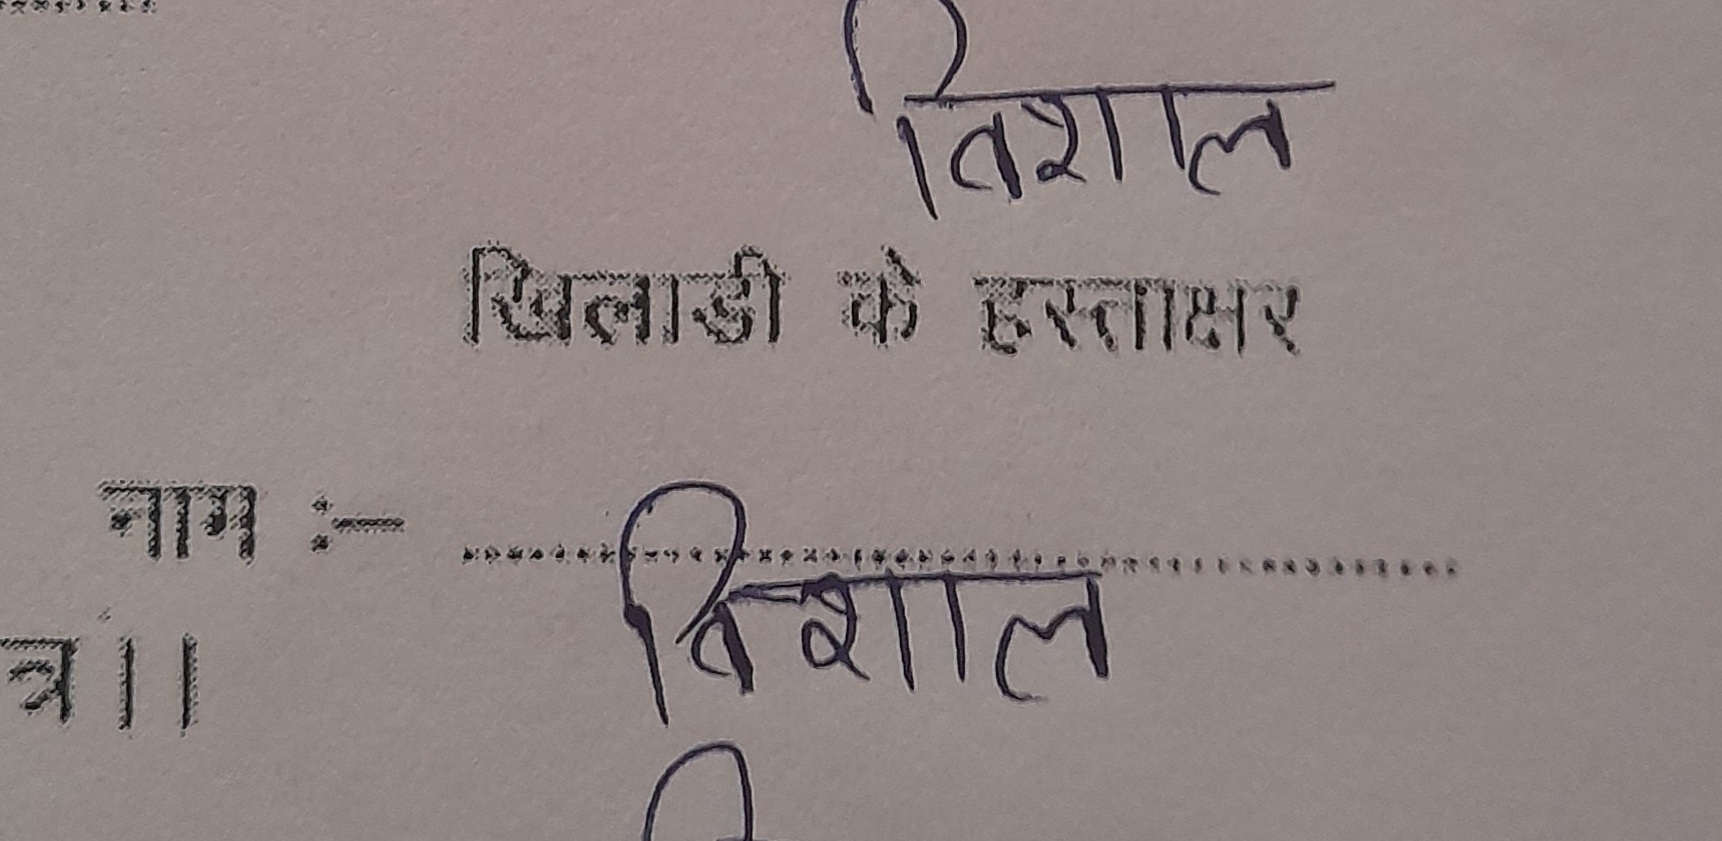 विशाल
खिलाडी के हस्ताक्षर
नाम :- ..........................................................
विशाल
त्र ।।